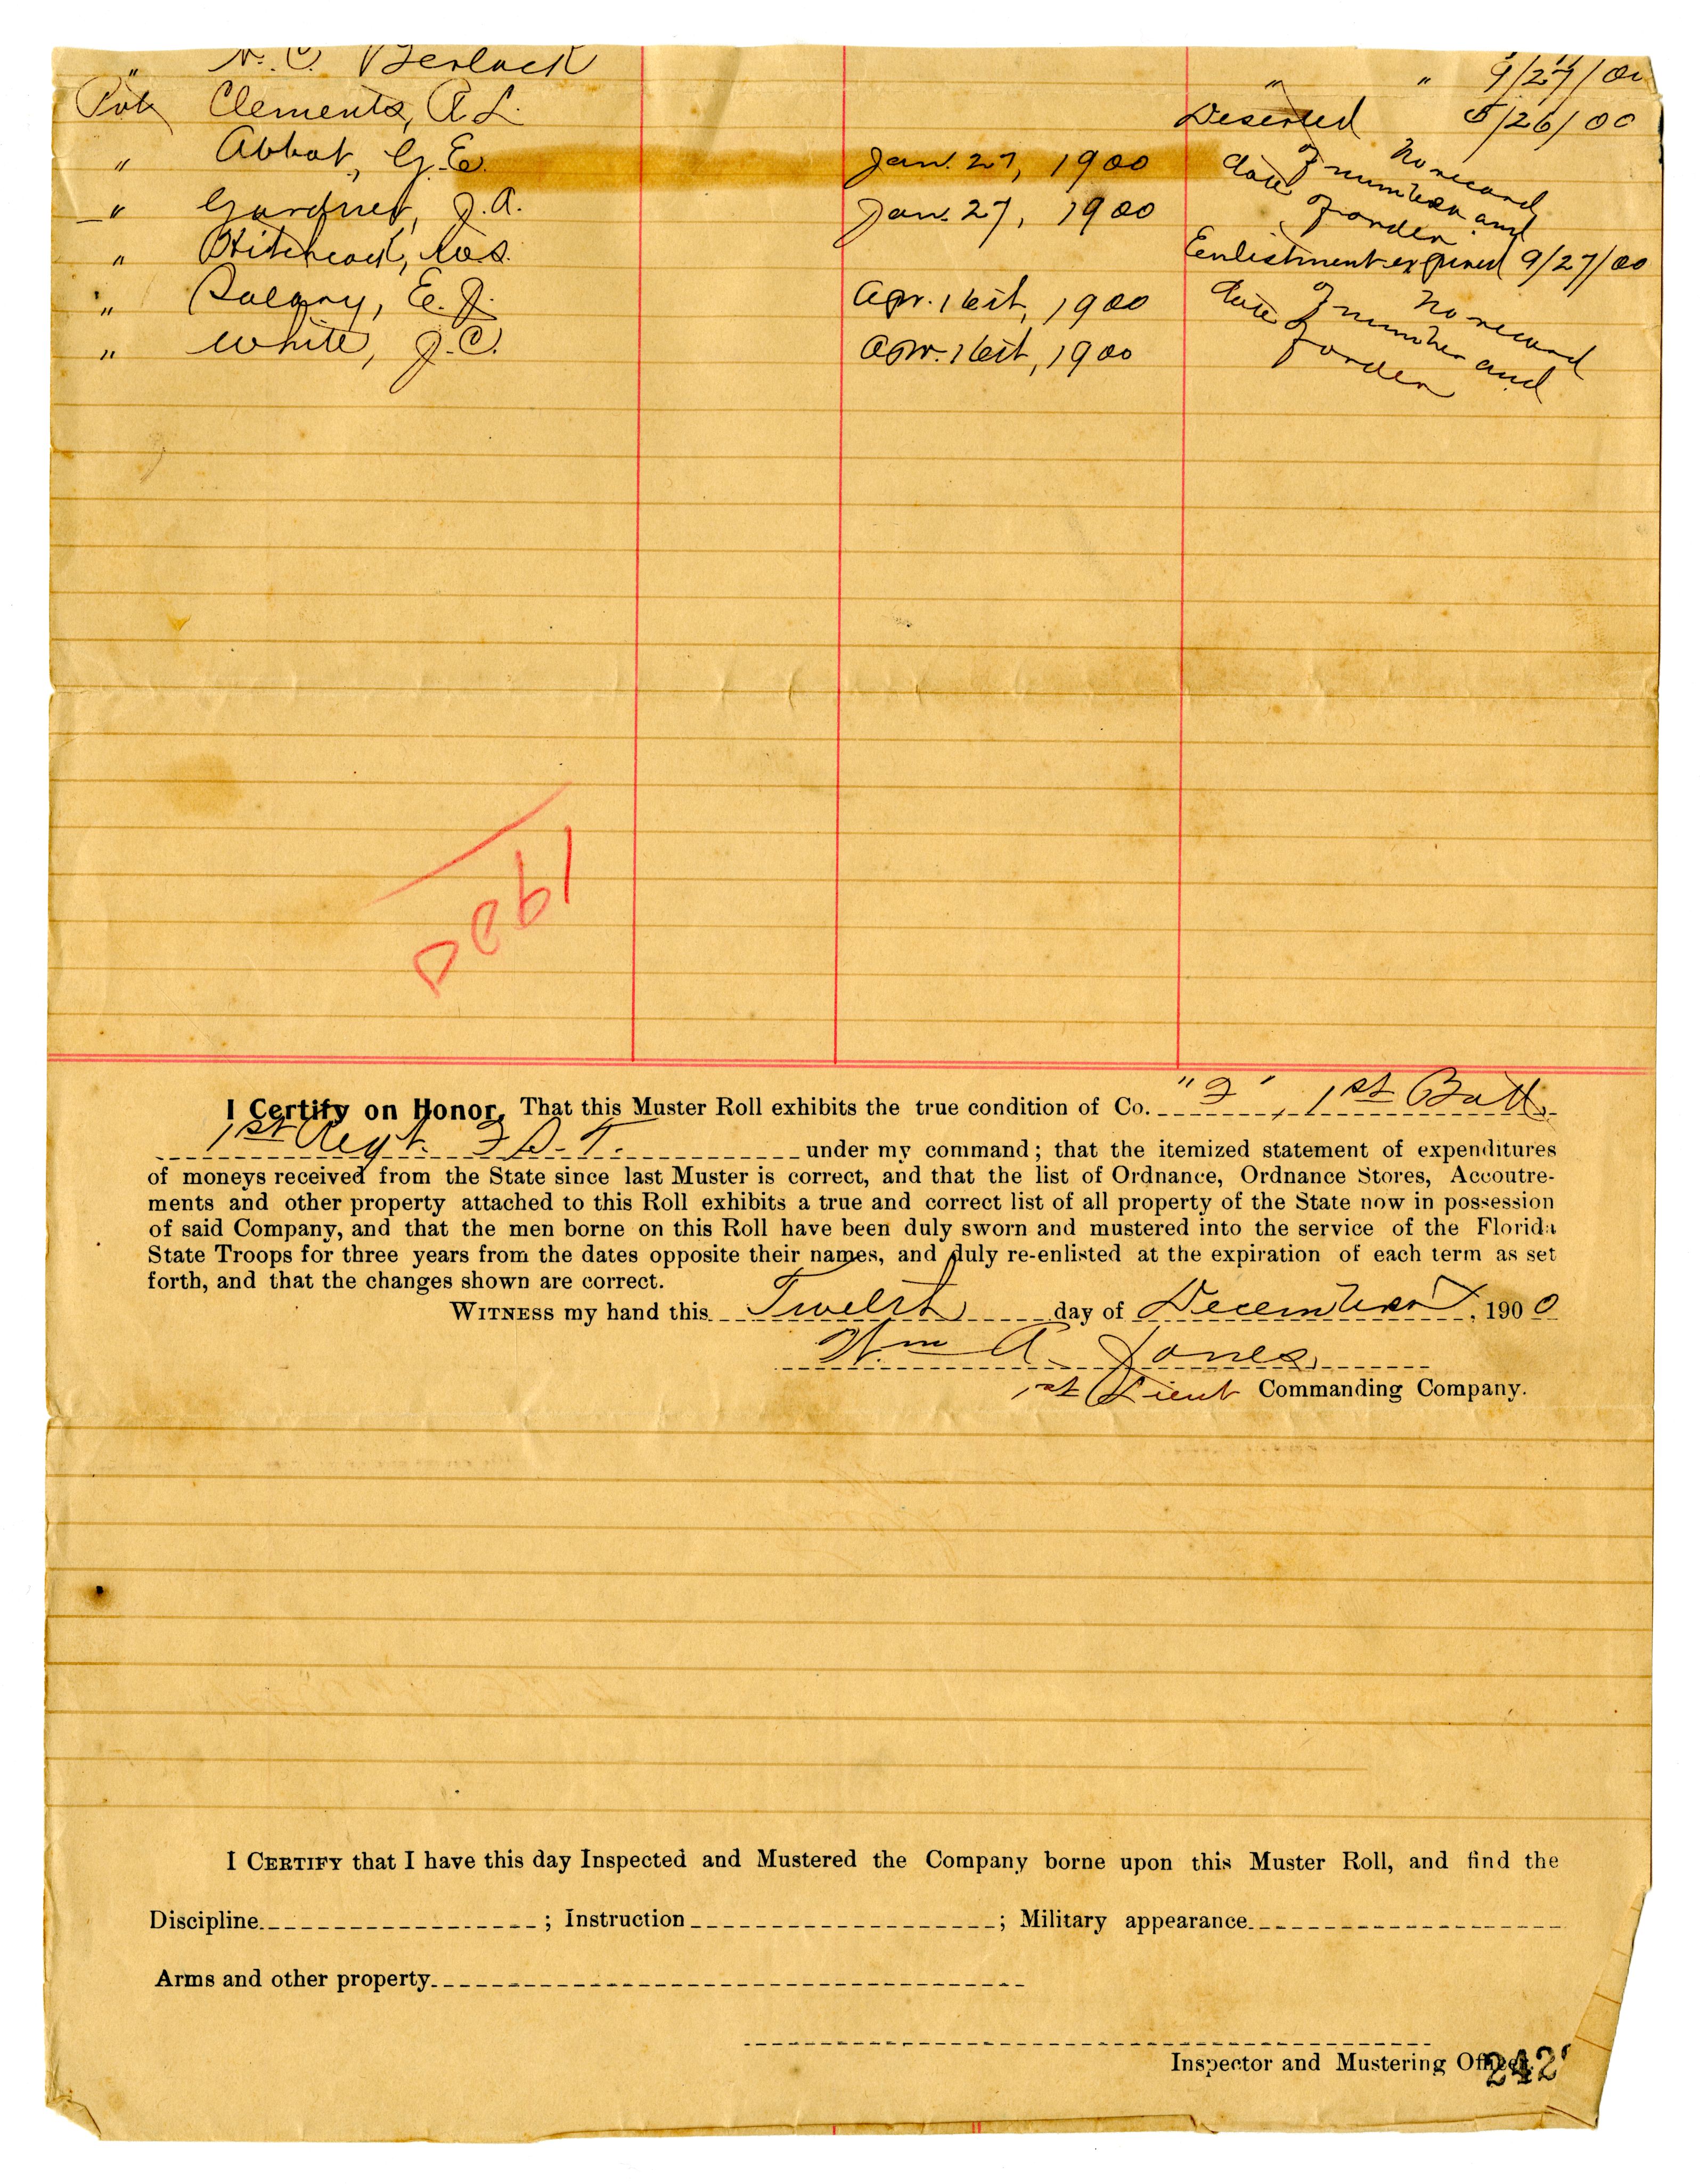 " N. C. Berlack " " 9/27/00
Pvt Clements, A. L. Deserted 5/26/00
" Abbot, G. E. Jan. 27, 1900 No record
of number and
date of order.
" Gardner, J. A. Jan. 27, 1900
" Hitchcock, Enlistment expired 9/27/00
" E. J. Apr. 16th, 1900 No record
of number and
date of order
" White, J. C. Apr. 16th, 1900
1900
I Certify on Honor, That this Muster Roll exhibits the true condition of Co. "F", 1st Batt.
1st Regt. F S. T. under my command; that the itemized statement of expenditures
of moneys received from the State since last Muster is correct, and that the list of Ordnance, Ordnance Stores, Accoutre-
ments and other property attached to this Roll exhibits a true and correct list of all property of the State now in possession
of said Company, and that the men borne on this Roll have been duly sworn and mustered into the service of the Florida
State Troops for three years from the dates opposite their names, and duly re-enlisted at the expiration of each term as set
forth, and that the changes shown are correct.
WITNESS my hand this Twelfth day of December, 1900
Wm A. Jones,
1st Lieut Commanding Company.
I CERTIFY that I have this day Inspected and Mustered the Company borne upon this Muster Roll, and find the
Discipline ; Instruction ; Military appearance
Arms and other property
Inspector and Mustering Officer.
242